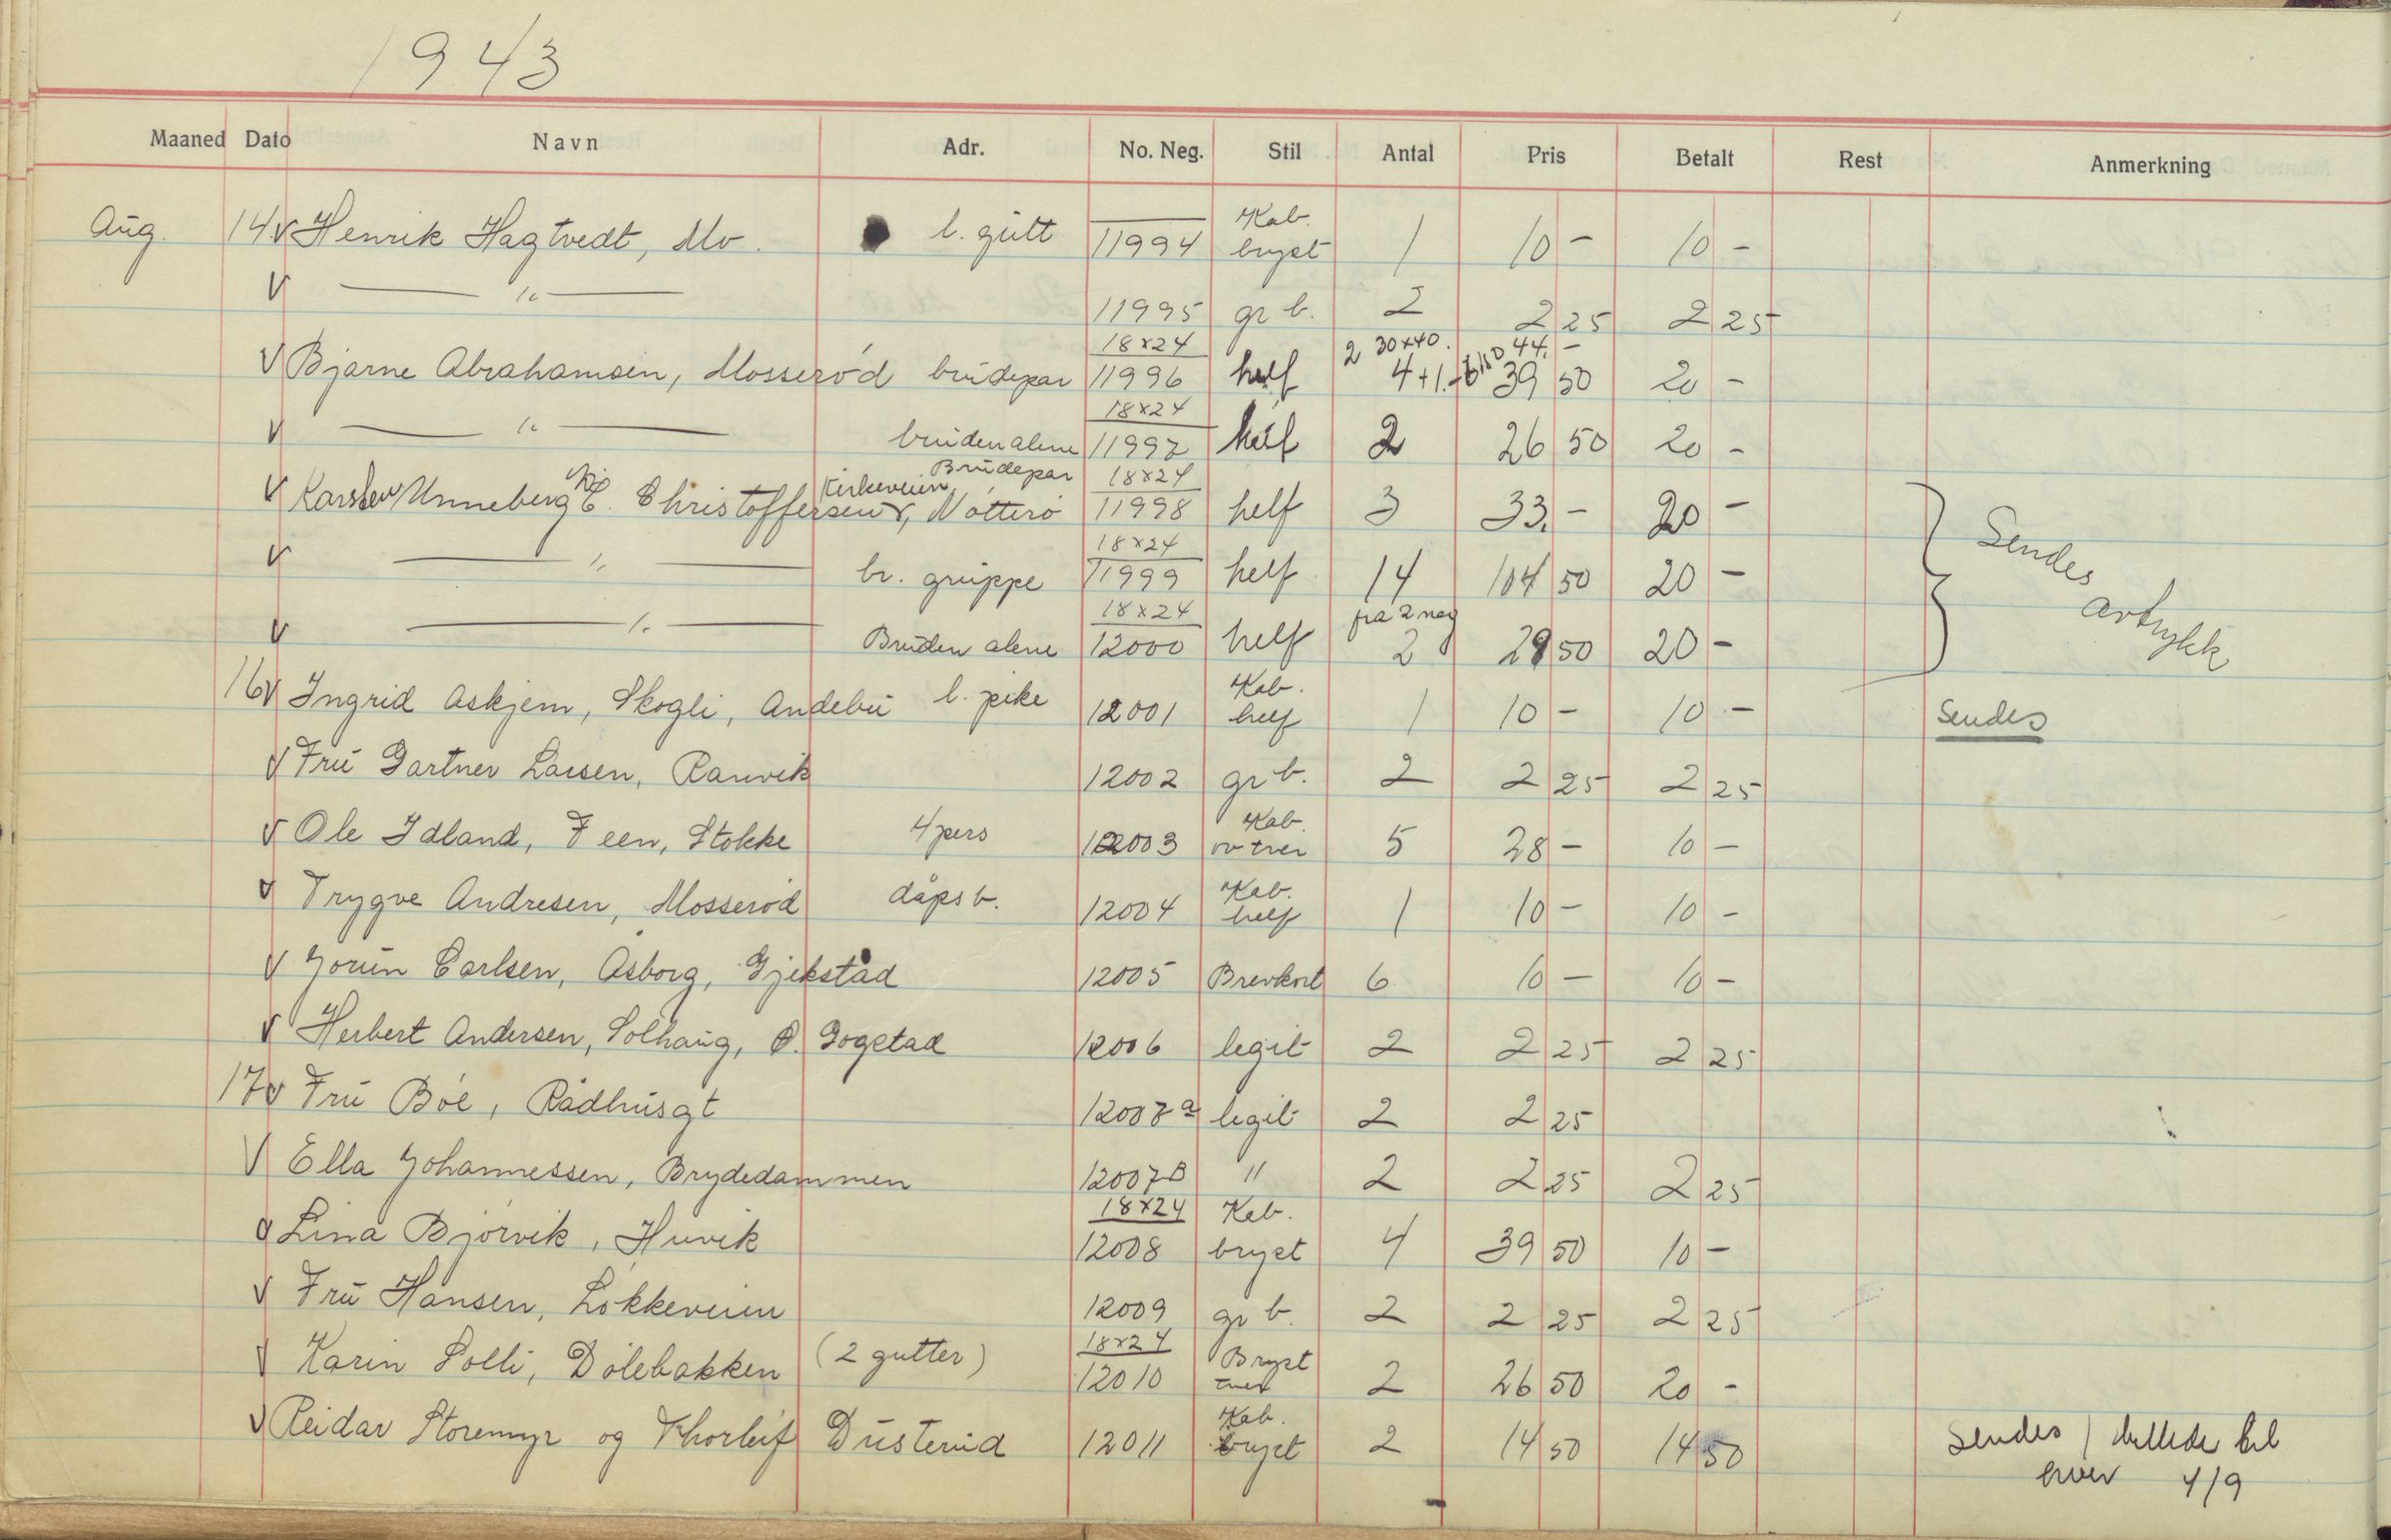 1943
Maaned Dato Navn Adr. No. Neg. Stil Antal Pris Betalt Rest Anmerkning
Aug. 14 v Henrik Hagtvedt, Mo. l. gutt 11994 Kab. bryst 1 10 - 10 -
v — " — 11995 gr b. 2 2 25 2 25
v Bjarne Abrahamsen, Mosserød brudepar 18x24 11996 helf 2 30x40. 4+1. 44. - 39 50 20 -
v — " — bruden alene 18x24 11997 helf 2 26 50 20 -
v Karsten Unneberg C. Christoffersen, Kirkeveien, Nøtterø Brudepar 18x24 11998 helf 3 33. - 20 -
v — " — br. gruppe 18x24 11999 helf 14 104 50 20 - Sendes avtrykk
v — " — Bruden alene 18x24 12000 helf fra 2 neg 2 29 50 20 -
16 v Ingrid Askjem, Skogli, Andebu l. pike 12001 Kab. helf 1 10 - 10 - Sendes
v Fru Gartner Larsen, Ranvik 12002 gr b. 2 2 25 2 25
v Ole Idland, Feen, Stokke 4 pers 12003 Kab. tver 5 28 - 10 -
v Trygve Andresen, Mosserød dåps b. 12004 Kab. helf 1 10 - 10 -
v Jorun Carlsen, Åsborg, Gjekstad 12005 Brevkort 6 10 - 10 -
v Herbert Andersen, Solhaug, Ø. Gogstad 12006 legit 2 2 25 2 25
17 v Fru Bøe, Rådhusgt 12007a legit 2 2 25
v Ella Johannessen, Brydedammen 12007B " 2 2 25 2 25
v Lina Bjørvik, Huvik 18x24 12008 Kab. bryst 4 39 50 10 -
v Fru Hansen, Løkkeveien 12009 gr b. 2 2 25 2 25
v Karin Solli, Dølebakken (2 gutter) 18x24 12010 Bryst tver 2 26 50 20 -
v Reidar Storemyr og Thorleif Dusterud 12011 Kab. bryst 2 14 50 14 50 Sendes 1 billede til
hver 4/9